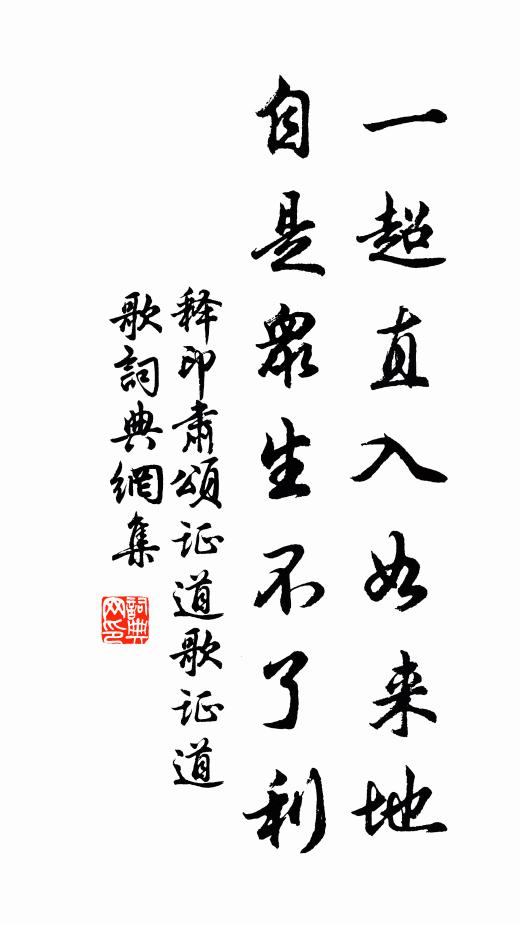 一超直入如来地
自是眾生不了利
释印肃颂证道歌证道
歌詞典網集
詞典
网印